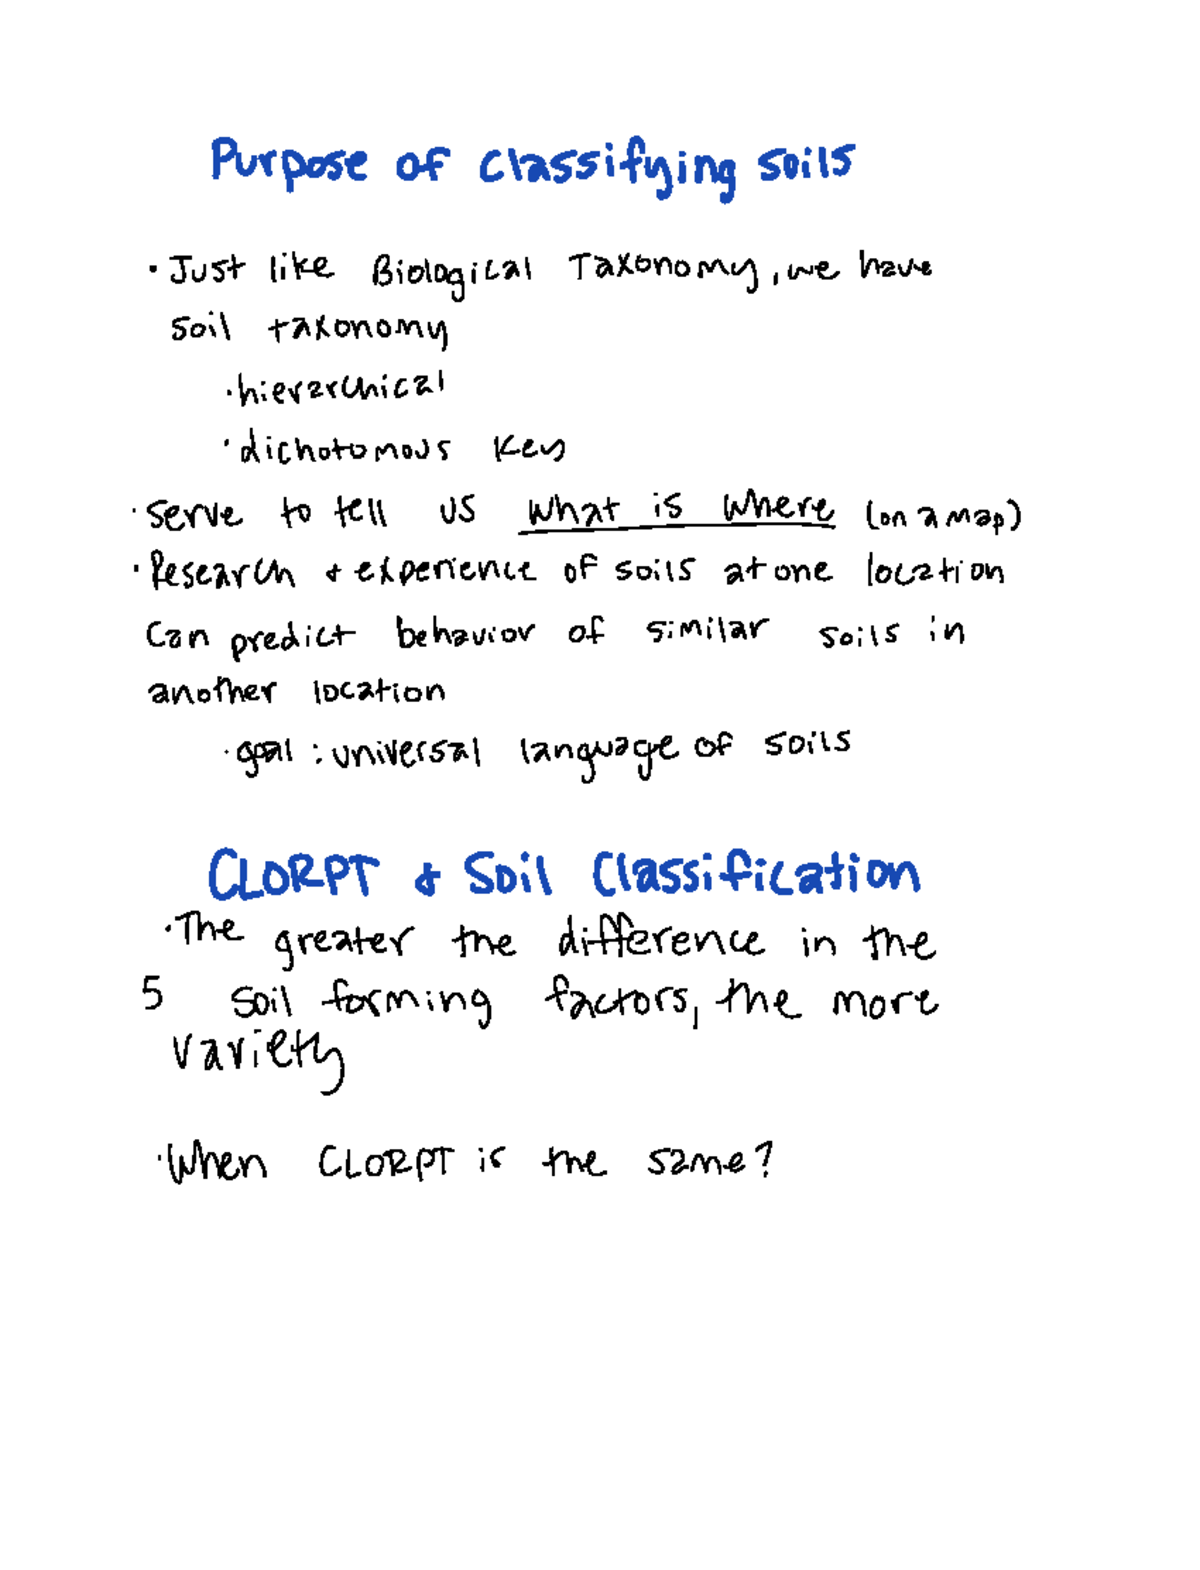 Purpose of classifying soils
· Just like Biological Taxonomy, we have
soil taxonomy
· hierarchical
· dichotomous key
· serve to tell us what is where (on a map)
· Research & experience of soils at one location
can predict behavior of similar soils in
another location
· goal : universal language of soils
CLORPT & Soil Classification
· The greater the difference in the
5 soil forming factors, the more
variety
· When CLORPT is the same?